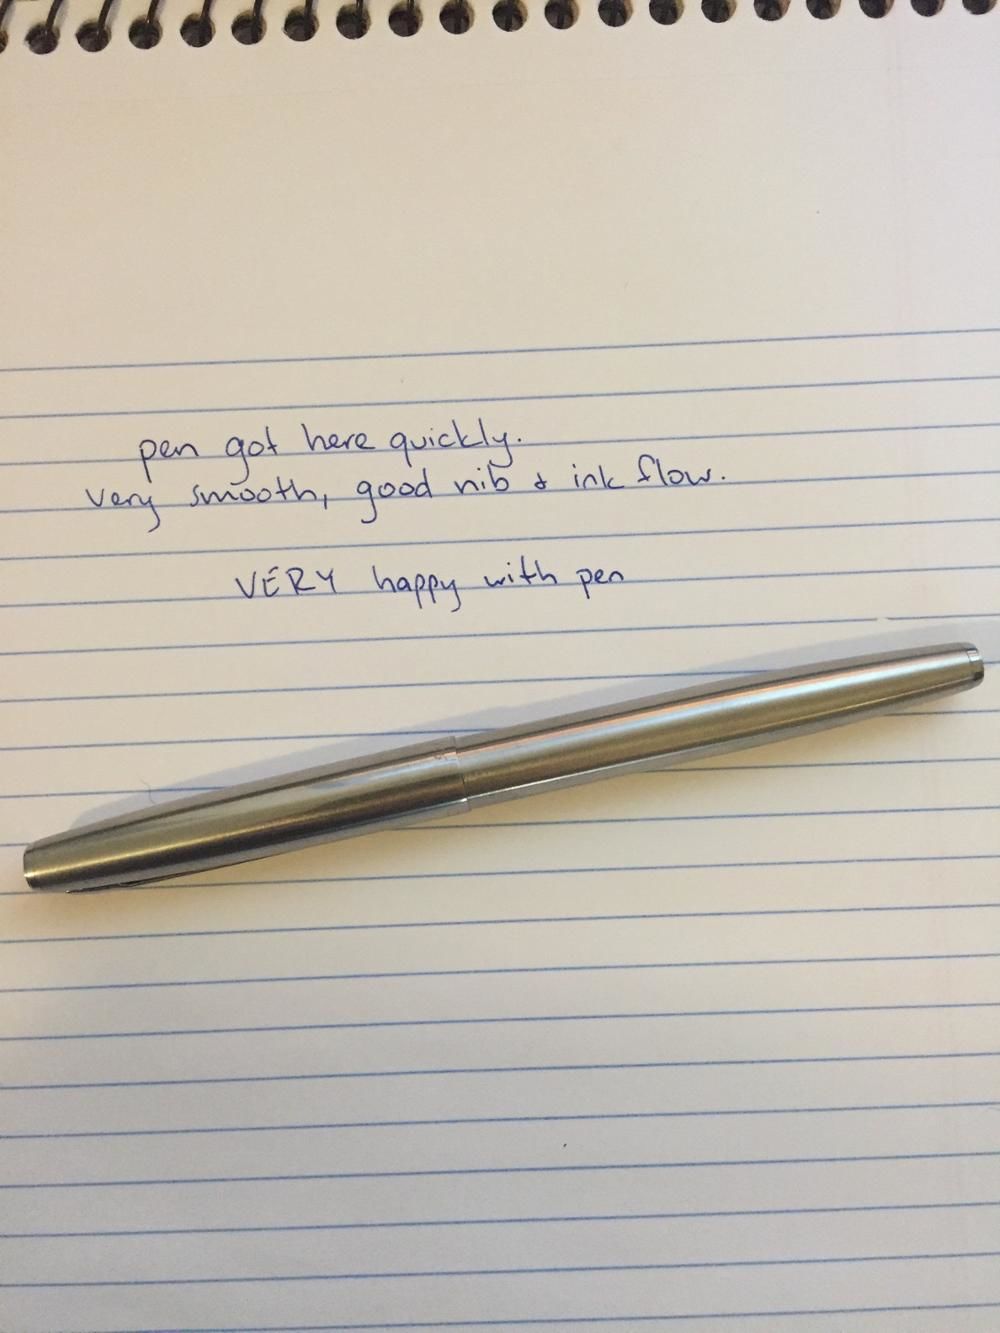 pen got here quickly.
very smooth, good nib & ink flow.
VERY happy with pen